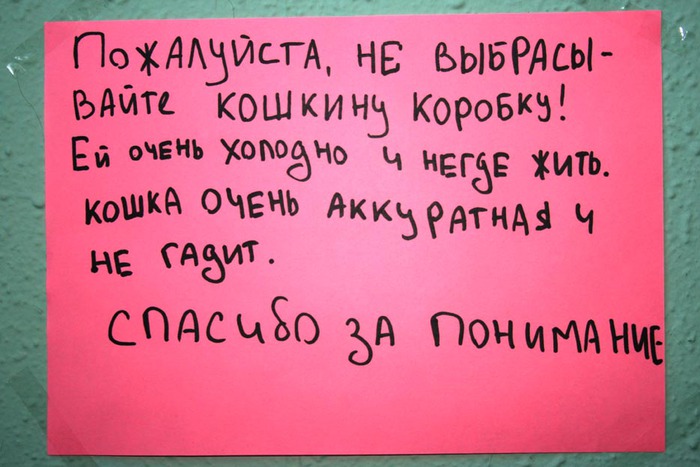 Пожалуйста, не выбрасы-
вайте кошкину коробку!
Ей очень холодно и негде жить.
кошка очень аккуратная и
не гадит.
Спасибо за понимание